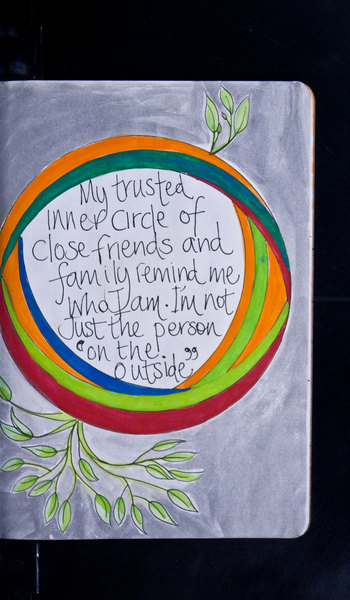 My trusted
Inner Circle of
Close friends and
family remind me
who I am. I'm not
Just the person
"on the
outside"